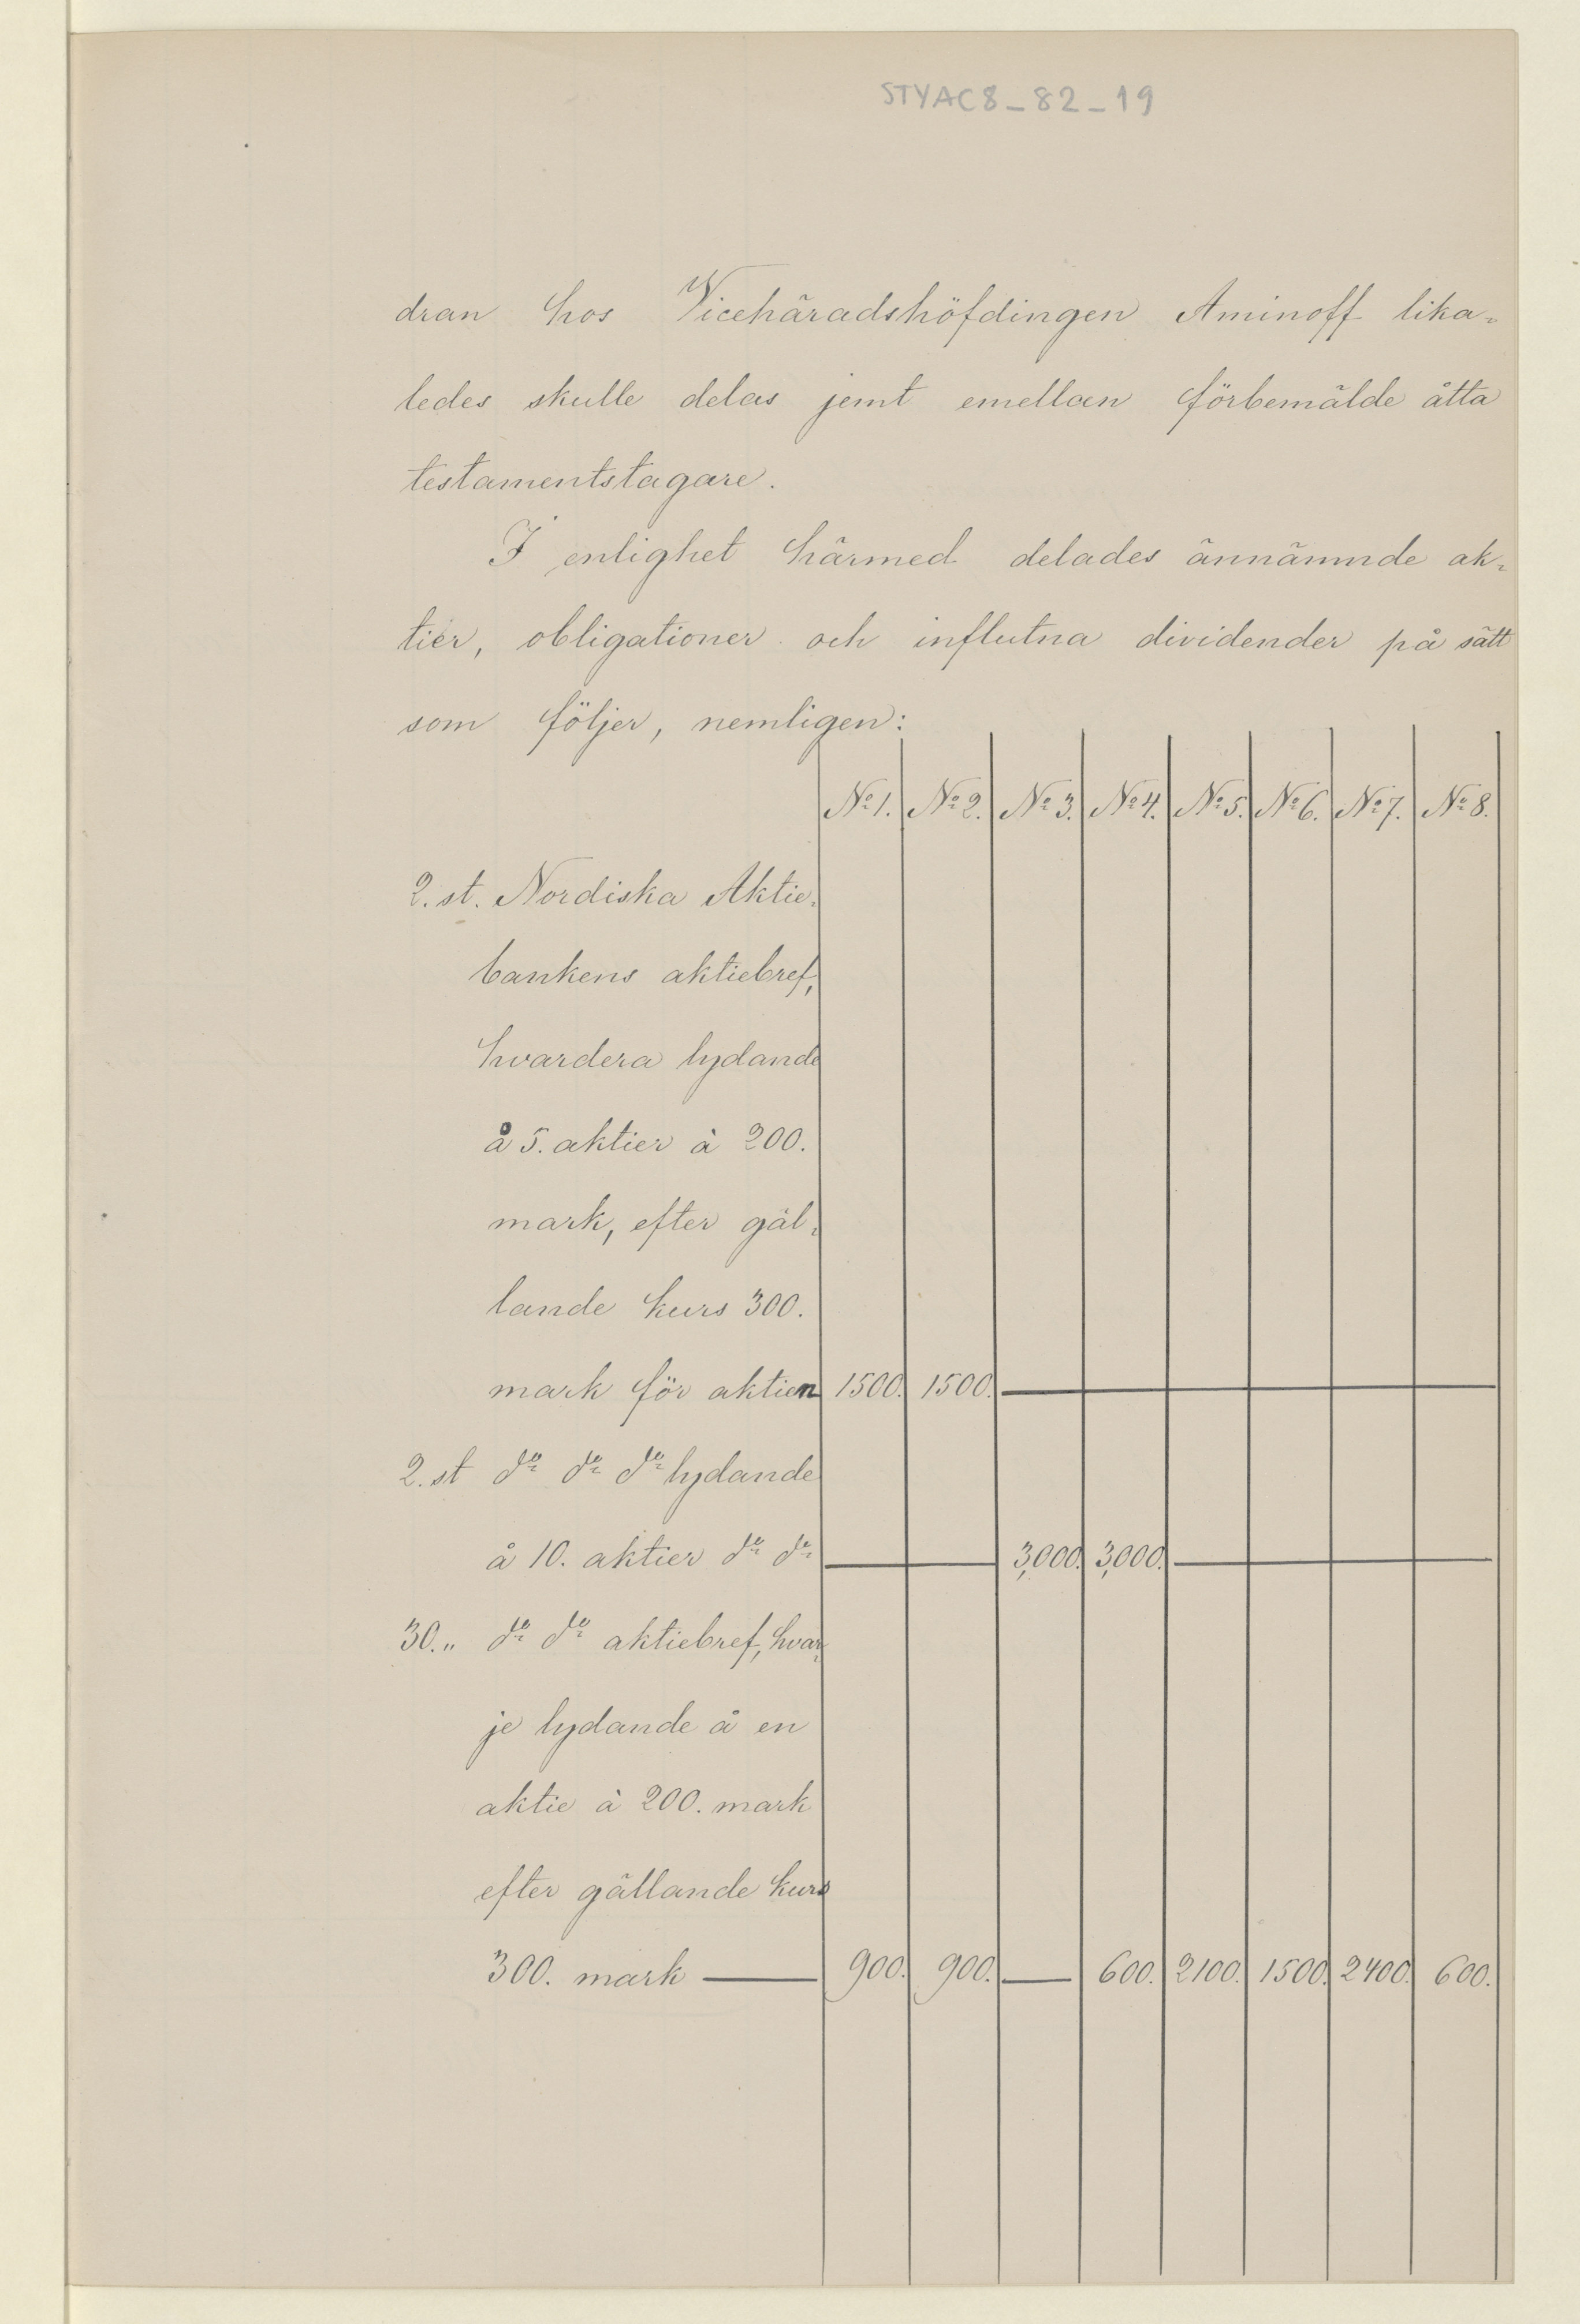 STYAC8_82_19
dran hos Vicehäradshöfdingen Aminoff lika-
ledes skulle delas jemt emellan förbemälde åtta
testamentstagare.
I enlighet härmed delades ännämnde ak-
tier, obligationer och influtna dividender på sätt
som följer, nemligen:
No 1. No 2. No 3. No 4. No 5. No 6. No 7. No 8.
2. st. Nordiska Aktie-
bankens aktiebref,
hvardera lydande
å 5. aktier à 200.
mark, efter gäl-
lande kurs 300.
mark för aktien 1500. 1500. —
2. st do do do lydande
å 10. aktier do do — 3,000. 3,000. —
30. " do do aktiebref, hvar-
je lydande å en
aktie à 200. mark
efter gällande kurs
300. mark — 900. 900. — 600. 2100. 1500. 2400. 600.